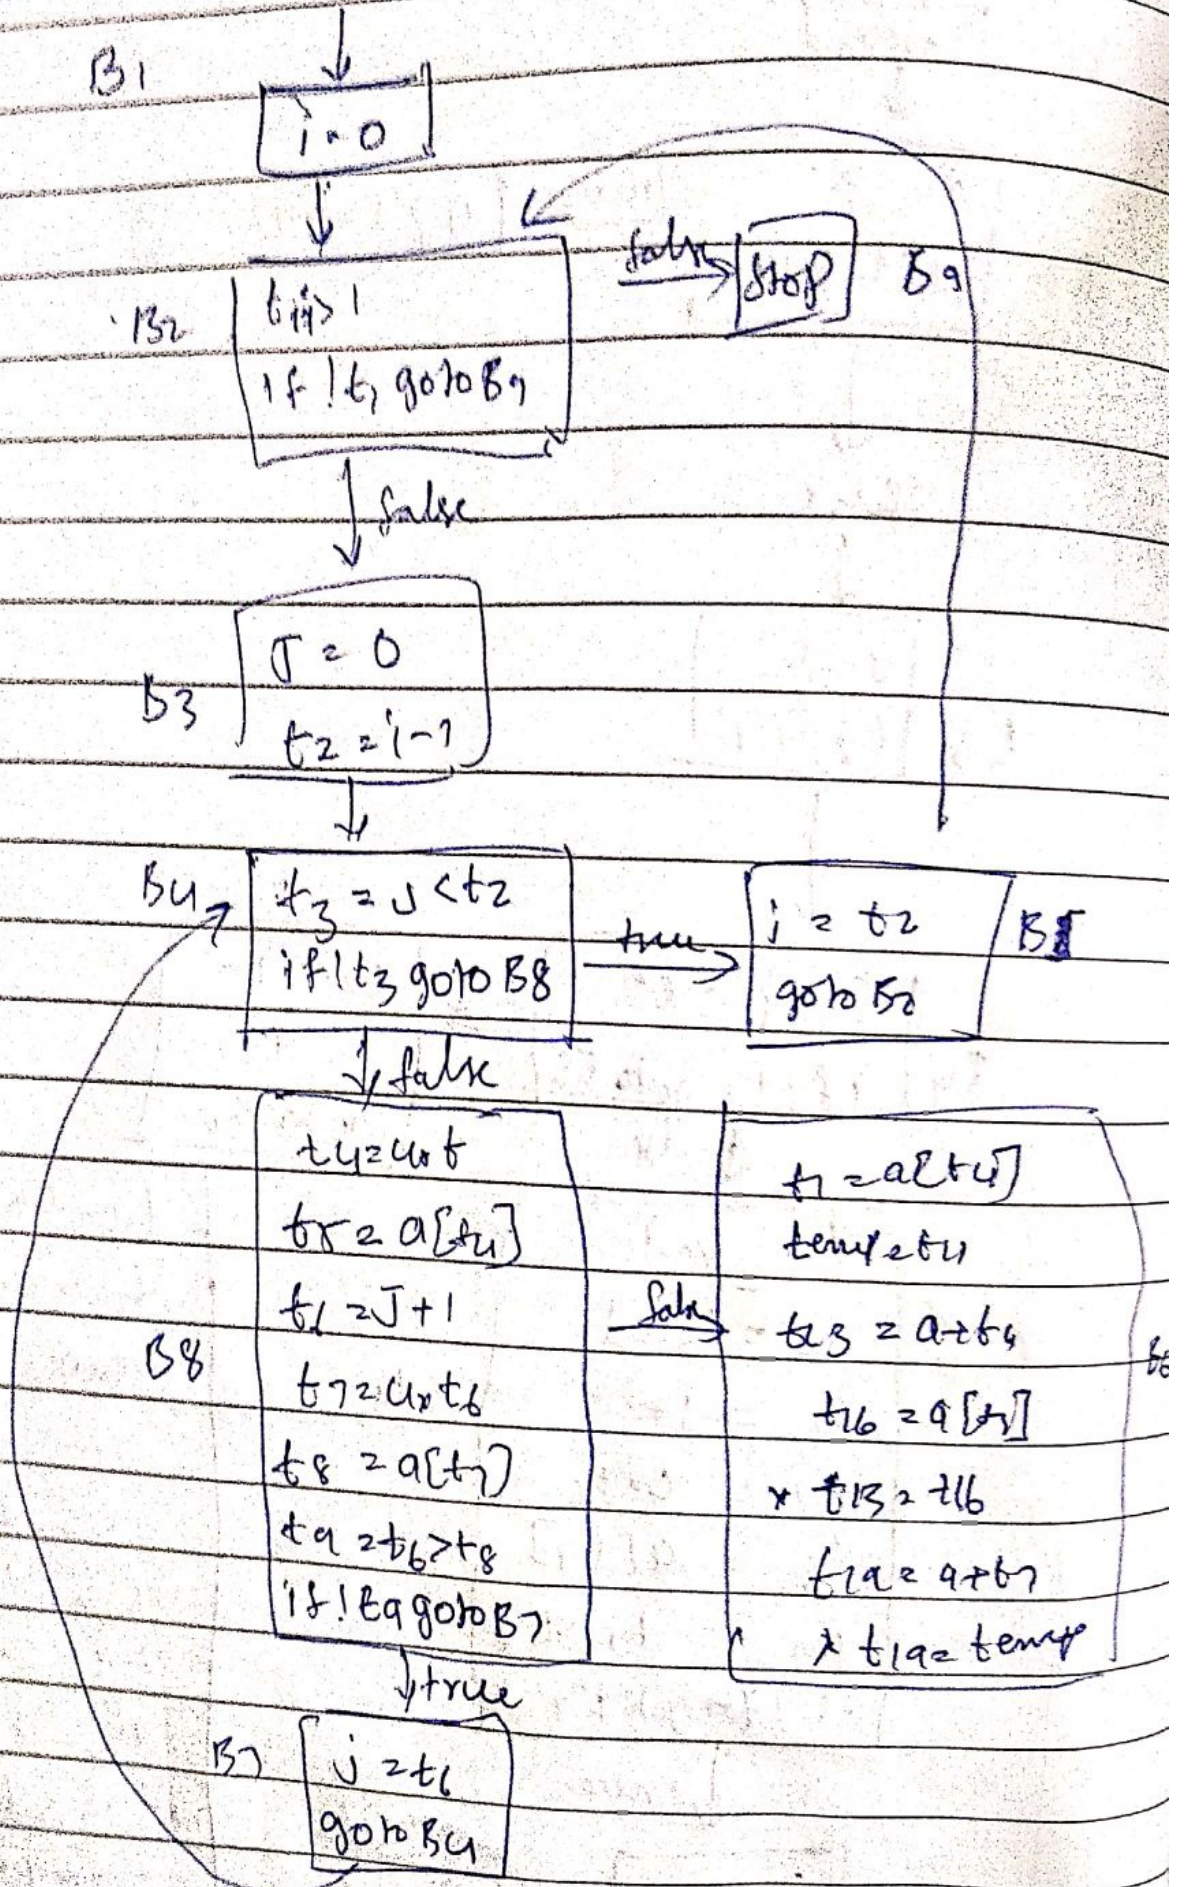 B1
i = 0
B2
if !t1 goto B9
false
Stop
B9
false
B3
J = 0
t2 = i-1
B4
t3 = J < t2
if !t3 goto B8
true
i = t2
goto B2
false
B8
t4 = 4 * t
t5 = a[t4]
t6 = J + 1
t7 = 4 * t6
t8 = a[t7]
t9 = t6 > t8
if ! t9 goto B7
false
temp = t4
t13 = a + t4
t16 = a[t7]
* t13 = t16
t19 = a + t7
* t19 = temp
true
B7
j = t6
goto B4